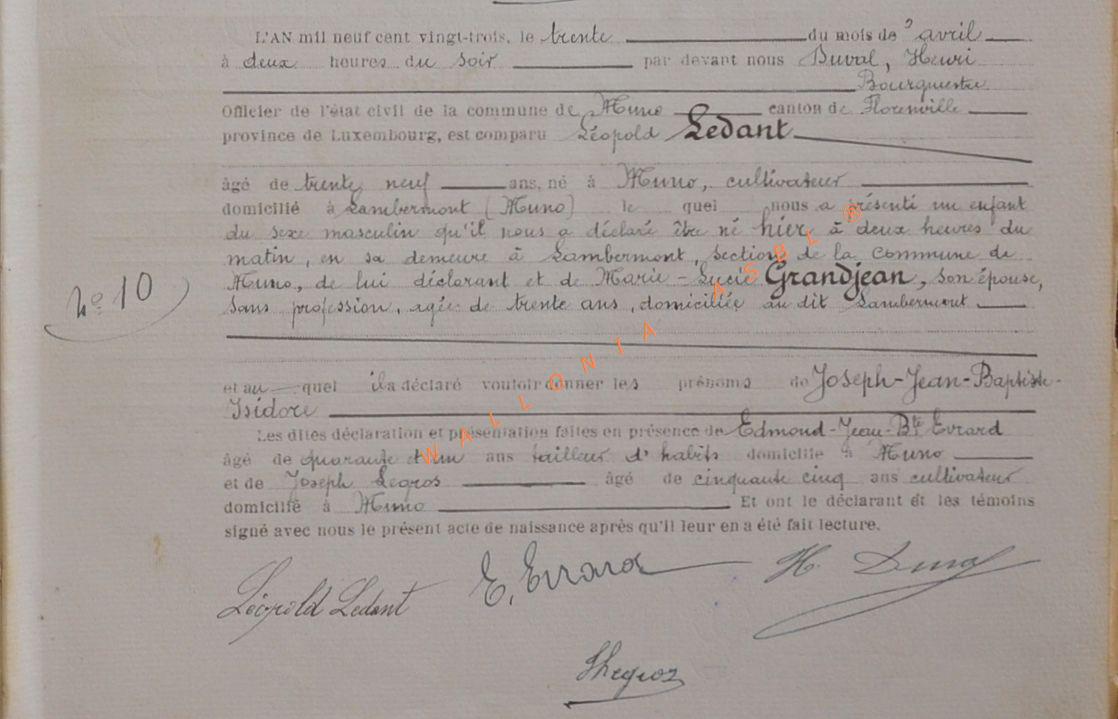 L'AN mil neuf cent vingt-trois, le trente du mois de d'avril
à deux heures du soir par devant nous Duval, Henri
Bourgmestre
Officier de l'état civil de la commune de Muno canton de Florenville
province de Luxembourg, est comparu Léopold Ledant
âgé de trente neuf ans, né à Muno, cultivateur
domicilié à Lambermont (Muno) le quel nous a présenté un enfant
du sexe masculin qu'il nous a déclaré être né hier à deux heures du
matin, en sa demeure à Lambermont, section de la commune de
Muno, de lui déclarant et de Marie-Lucie Grandjean, son épouse,
sans profession, agée de trente ans, domiciliée au dit Lambermont
No 10
et au quel il a déclaré vouloir donner les prénoms de Joseph-Jean-Baptiste-
Isidore
Les dites déclaration et présentation faites en présence de Edmond-Jean-Bte Evrard
âgé de quarante et un ans tailleur d'habits domicilié à Muno
et de Joseph Legros âgé de cinquante cinq ans cultivateur
domicilié à Muno Et ont le déclarant et les témoins
signé avec nous le présent acte de naissance après qu'il leur en a été fait lecture.
Léopold Ledant E. Evrard H. Duval
J Legros
WALLONIA ASBL ®